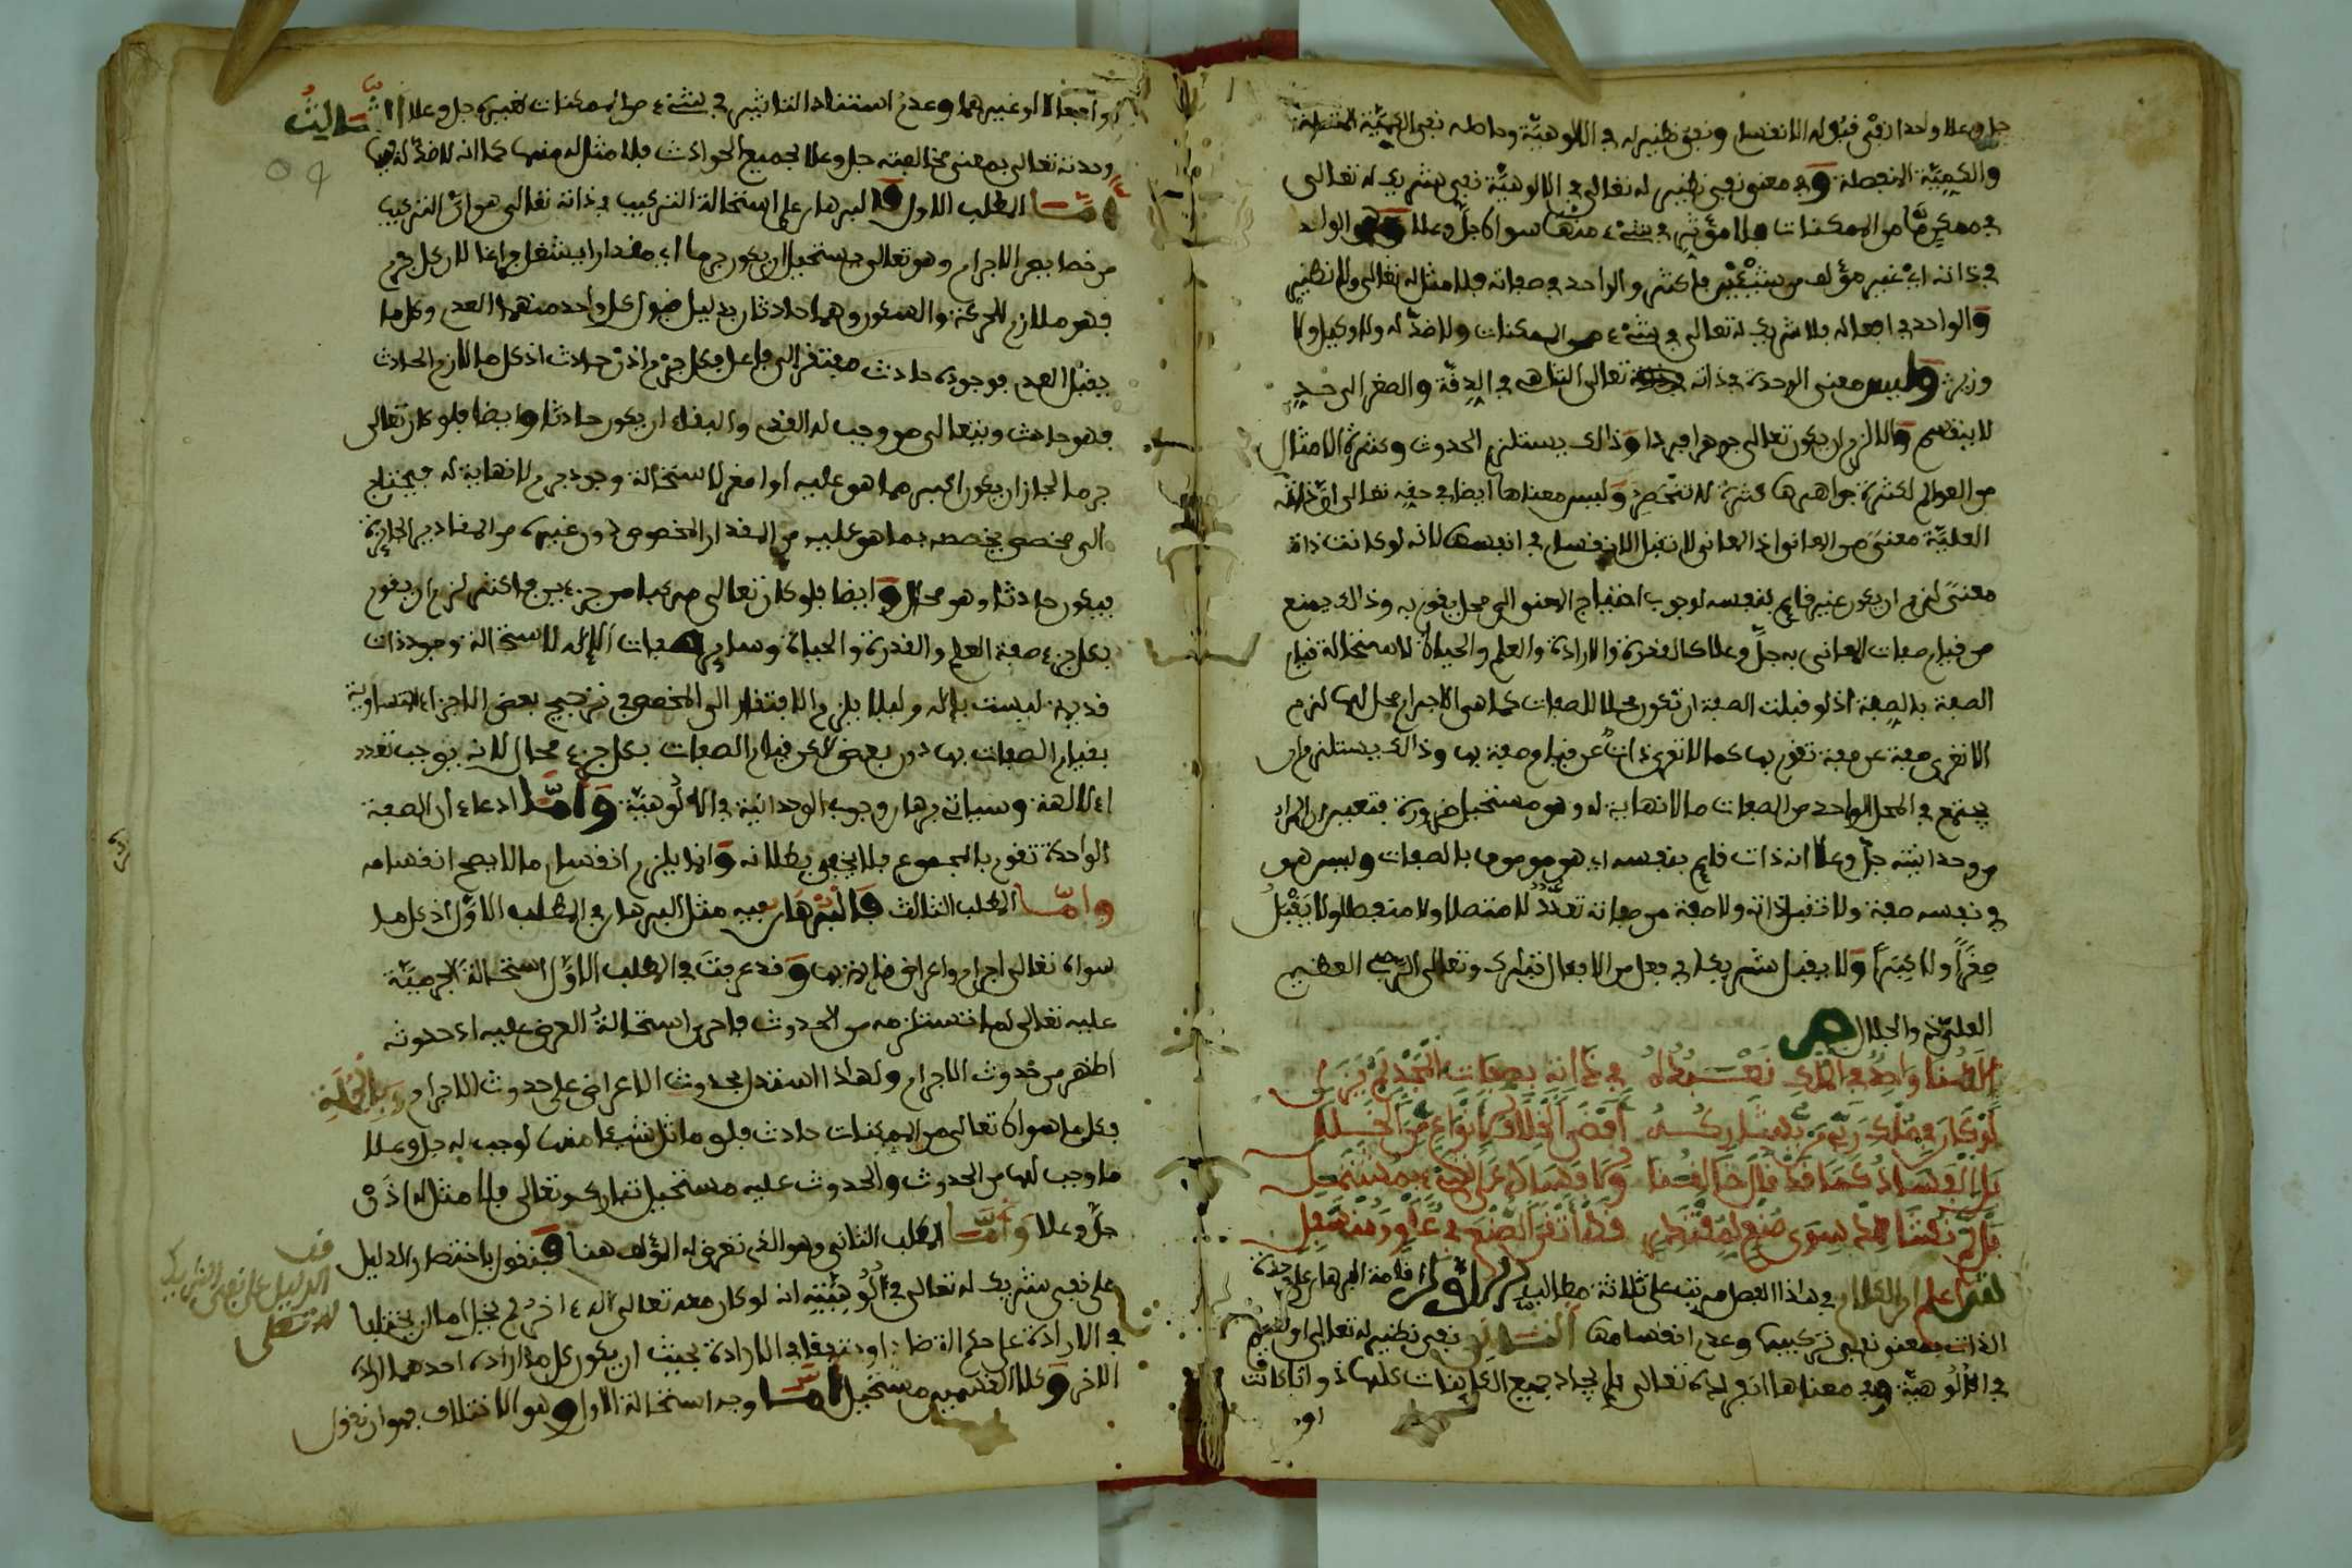 جل وعلا واحدا نفي قبوله الانقسام ونفي نظير له في الالوهية وحاصله نفي الكمية المتصلة
والكمية المنفصلة وفي معنى نفي نظير له تعالى في الالوهية نفي شريك له تعالى
في ممكن ما من الممكنات فلا مؤثر في شيء منها سواه جل وعلا فهو الواحد
في ذاته اي غير مؤلف من شيئين فاكثر والواحد في صفاته فلا مثل له تعالى ولا نظير
والواحد في افعاله فلا شريك له تعالى في شيء من الممكنات ولا ضد له ولا وكيل ولا
وزير وليس معنى الوحدة في ذاته تعالى التناهي في الدقة والصغر الى حد
لا ينقسم والا لزم ان يكون تعالى جوهرا فردا وذلك يستلزم الحدوث وكثرة الامثال
من العوالم لكثرة جواهرها كثرة لا تنحصر وليس معناها ايضا في حقه تعالى ان ذاته
العلية معنى من المعاني اذ المعاني لا تقبل الانقسام في انفسها لانه لو كانت ذاته
معنى لزم ان يكون غير قايم بنفسه لوجوب احتياج المعنى الى محل يقوم به وذلك يمنع
من قيام صفات المعاني به جل وعلا كالقدرة والارادة والعلم والحياة لاستحالة قيام
الصفة بالصفة اذ لو قبلت الصفة ان تكون محلا للصفات كما هي الاجرام محل لها لزم
الا تعرى صفة عن صفة تقوم بها كما لا تعرى ذات عن قيام صفة بها وذلك يستلزم ان
يجتمع في المحل الواحد من الصفات ما لا نهاية له وهو مستحيل ضرورة فتعين ان المراد
من وحدانيته جل وعلا انه ذات قايم بنفسه اي هو موصوف بالصفات وليس هو
في نفسه صفة ولا تقبل ذاته ولا صفة من صفاته تعددا لا متصلا ولا منفصلا ولا يقبل
صغرا ولا كبرا ولا يقبل شريكا في فعل من الافعال تبارك وتعالى العظيم
العلي ذو الجلال ص
الهنا واحد في الملك نعبده في ذاته بصفات المجد لم يزل
لو كان في ملك ربي من يشاركه
بل الفساد كما قد قال خالقنا وما فساد على شيء بمشتمل
بل لم نشاهد سوى صنع لمقتدر قد اتقن الصنع في علو ومنسفل
ش اعلم ان الكلام في هذا الفصل مرتب على ثلاثة مطالب الاول اقامة البرهان على وحدة
الذات بمعنى نفي تركيبها وعدم انقسامها الثاني نفي نظير له تعالى او قسيم
في الالوهية وفي معناها انفراده تعالى بايجاد جميع الكاينات كلها ذواتا كانت
او
او افعالا او غيرهما وعدم استناد التاثير في شيء من الممكنات لغيره جل وعلا الثالث
وحدته تعالى بمعنى مخالفته جل وعلا لجميع الحوادث فلا مثل له منها كما انه لا ضد له فيها
اما المطلب الاول فالبرهان على استحالة التركيب في ذاته تعالى هو ان التركيب
من خصايص الاجرام وهو تعالى يستحيل ان يكون جرما اي مقدارا يشغل فراغا لان كل جرم
فهو ملازم للحركة والسكون وهما حادثان بدليل قبول كل واحد منهما العدم وكل ما
يقبل العدم فوجوده حادث مفتقر الى فاعل فكل جرم اذن حادث اذ كل ما لازم الحادث
فهو حادث ويتعالى من وجب له القدم والبقاء ان يكون حادثا وايضا فلو كان تعالى
جرما لجاز ان يكون اكبر مما هو عليه او اصغر لاستحالة وجود جرم لا نهاية له فيحتاج
الى مخصص يخصصه بما هو عليه من المقدار المخصوص دون غيره من المقادير الجايزة
فيكون حادثا وهو محال وايضا فلو كان تعالى مركبا من جزءين فاكثر لزم ان يقوم
بكل جزء صفة العلم والقدرة والحياة وساير صفات الاله لاستحالة وجود ذات
قديمة ليست باله وليلا يلزم الافتقار الى المخصص في ترجيح بعض الاجزاء المتساوية
بقيام الصفات بها دون بعض لكن قيام الصفات بكل جزء محال لانه يوجب تعدد
الالهة وسياتي برهان وجوب الوحدانية في الالوهية واما ادعاء ان الصفة
الواحدة تقوم بالمجموع فلا يخفى بطلانه وانه يلزم انقسام ما لا يصح انقسامه
واما المطلب الثالث فالبرهان فيه مثل البرهان في المطلب الاول اذ كل ما
سواه تعالى اجرام واعراض قايمة بها وقد عرفت في المطلب الاول استحالة الجرمية
عليه تعالى لما تستلزمه من الحدوث فاحرى استحالة العرض عليه اذ حدوثه
اظهر من حدوث الاجرام ولهذا استدل بحدوث الاعراض على حدوث الاجرام وبالجملة
فكل ما سواه تعالى من الممكنات حادث فلو ماثل شيئا منها لوجب له جل وعلا
ما وجب لها من الحدوث والحدوث عليه مستحيل تبارك وتعالى فلا مثل له اذن
جل وعلا واما المطلب الثاني وهو الذي تعرض له المؤلف هنا فنقول باختصار الدليل
على نفي شريك له تعالى في الوهيته انه لو كان معه تعالى اله اخر لم يخل اما ان يختلفا
في الارادة على حكم التضاد او يتفقا في الارادة بحيث ان يكون كل ما اراده احدهما اراده
الاخر وكلا القسمين مستحيل اما وجه استحالة الاول وهو الاختلاف فهو ان نقول
قف
الدليل على نفي الشريك
له تعالى